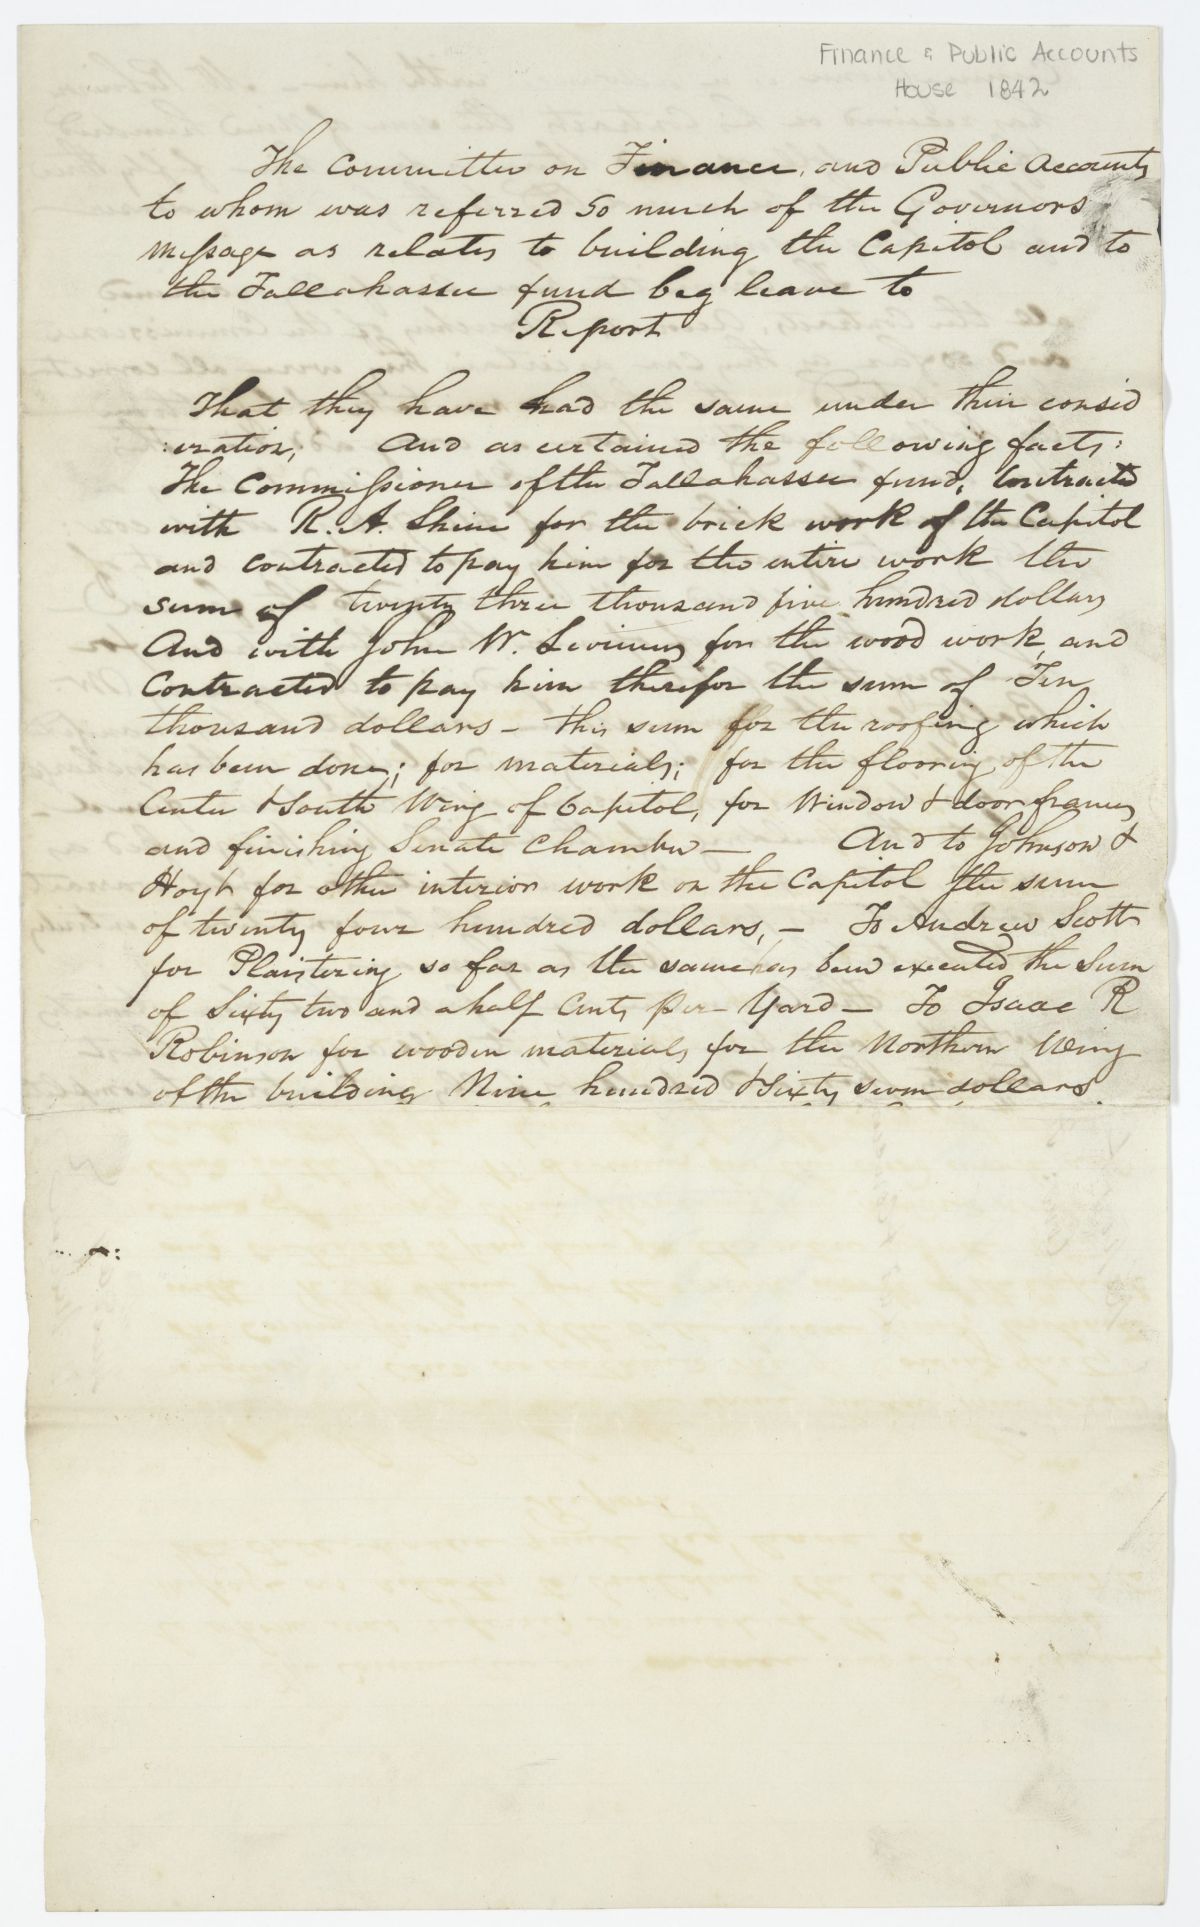 Finance & Public Accounts
House 1842
The Committee on Finance, and Public Accounts
to whom was referred so much of the Governors
message as relates to building the Capitol and to
the Tallahassee fund beg leave to
Report
That they have had the same under their consid
:eration; And ascertained the following facts:
The Commissioner of the Tallahassee fund, Contracted
with R. A. Shine for the brick work of the Capitol
and contracted to pay him for the entire work the
sum of twenty three thousand five hundred dollars
And with John W. for the wood work, and
Contracted to pay him therefor the sum of Ten
thousand dollars – this sum for the roofing which
has been done; for materials; for the flooring of the
Center & South Wing of Capitol, for Window & door frames,
and finishing Senate Chamber – And to Johnson &
Hoyt for other interior work on the Capitol the sum
of twenty four hundred dollars, – To Andrew Scott
for Plaistering so far as the same has been executed the Sum
of Sixty two and a half Cents per Yard – To Isaac R
Robinson for wooden materials for the Northern Wing
of the building Nine hundred & Sixty seven dollars.